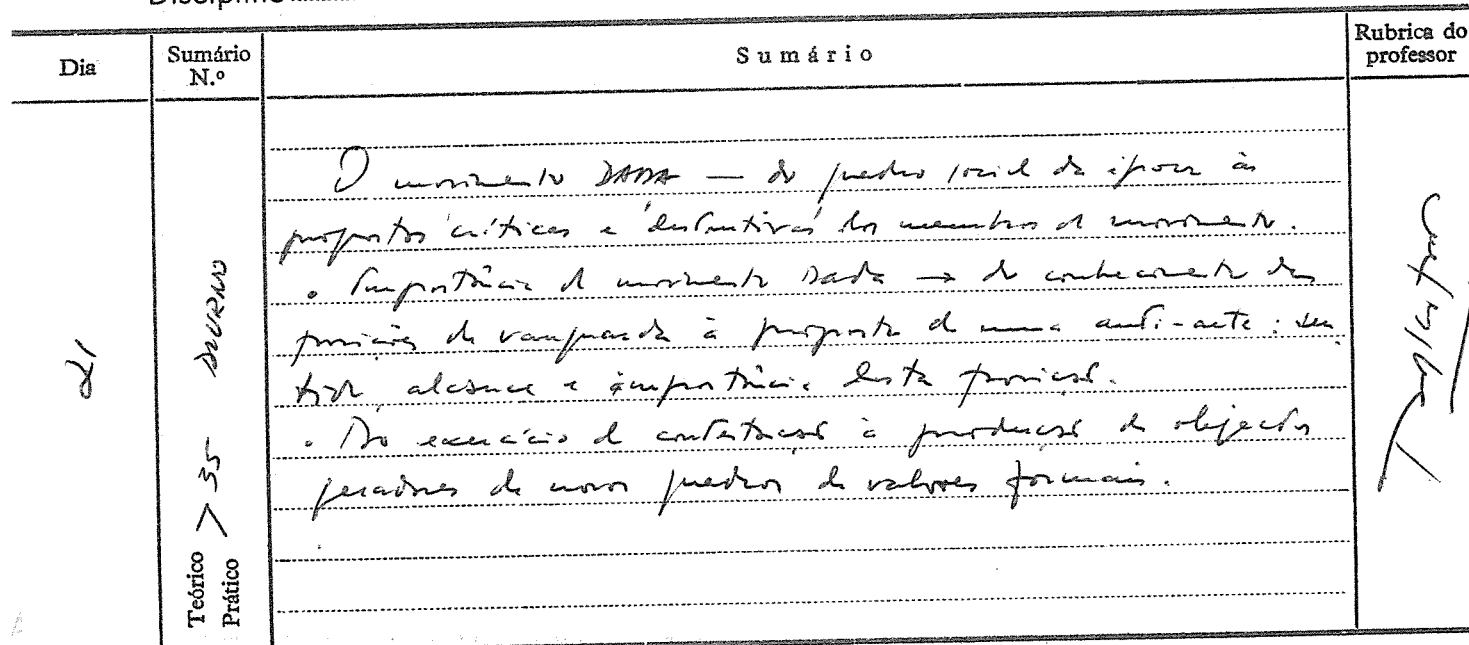 Dia
Sumário N.º
Sumário
Rubrica do professor
21
Teórico
Prático
> 35 DIURNO
O movimento DADA — do quadro social da época às
propostas críticas e destrutivas dos membros do movimento.
. Importância do movimento Dada → do conhecimento das
posições de vanguarda à proposta de uma anti-arte: sen
tido, alcance e importância desta posição.
. Do exercício de contestação à produção de objectos
geradores de novos quadros de valores formais.